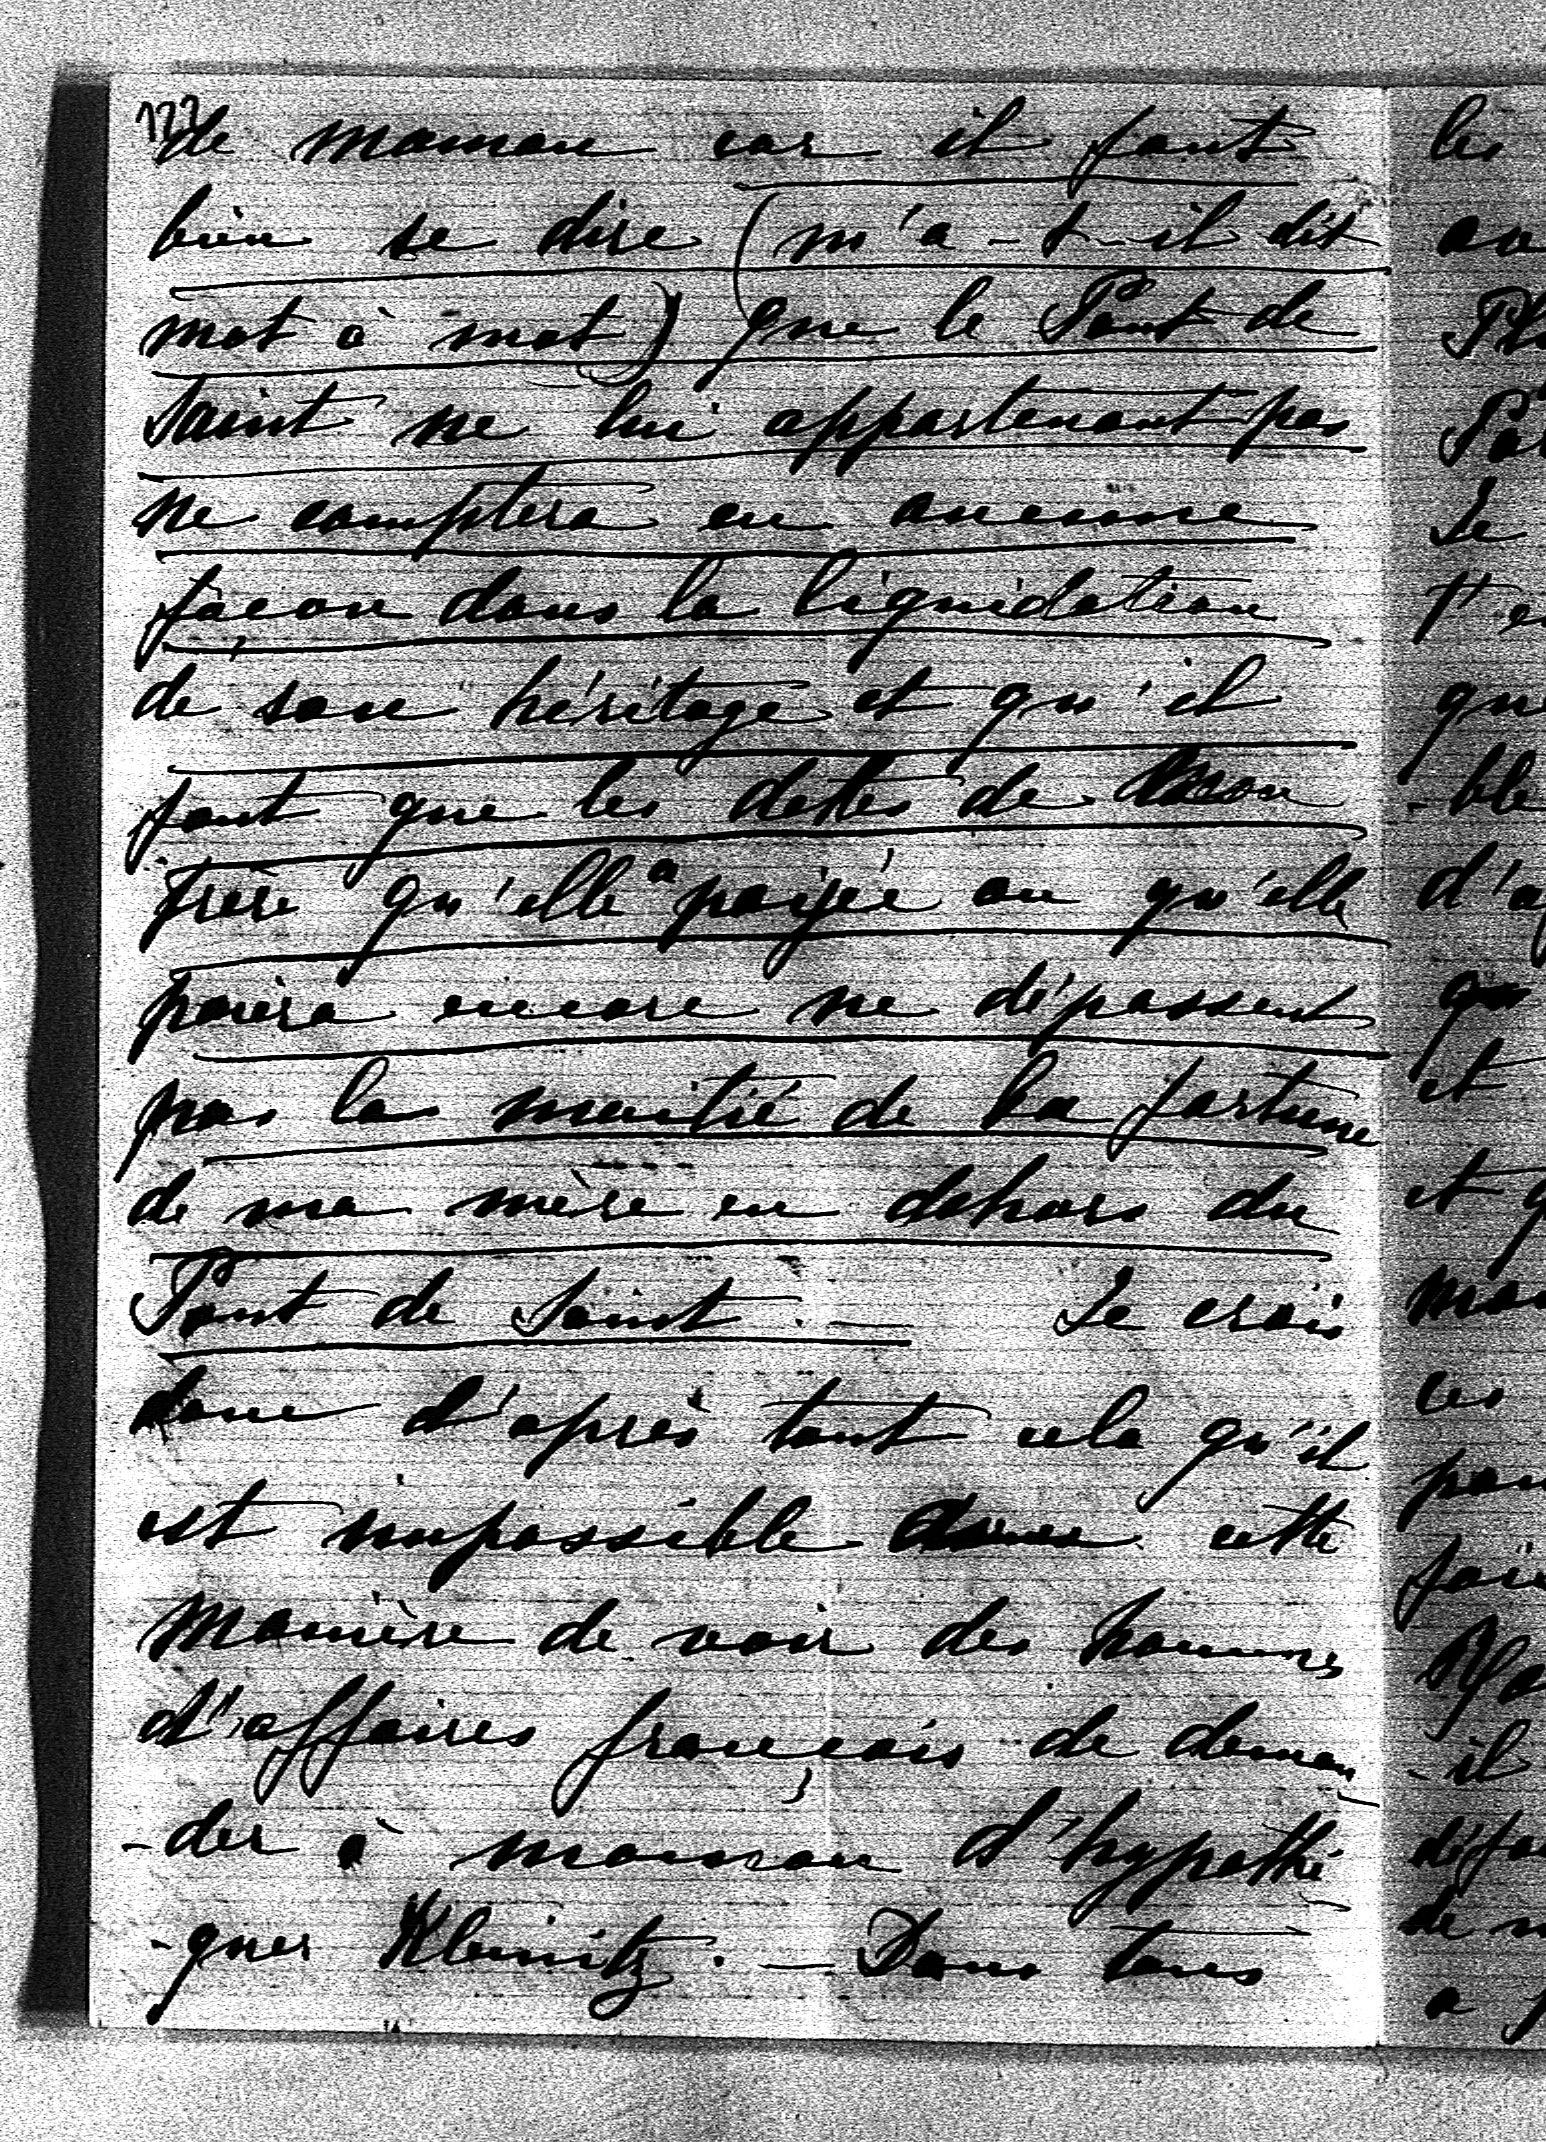 177
de maman car il faut
bien se dire (m'a-t-il dit
mot à mot) que le Pont de
Saint ne lui appartenant pas
ne comptera en aucune
façon dans la liquidation
de son héritage et qu'il
faut que les dettes de Mon
frère qu'elle a payée ou qu'elle
paiera encore ne dépassent
pas la moitié de la fortune
de ma mère en dehors du
Pont de Saint. — Je crois
donc d'après tout cela qu'il
est impossible dans cette
manière de voir des hommes
d'affaires français de deman-
-der à maman d'hypothé-
-quer Kleinitz. — Dans tous